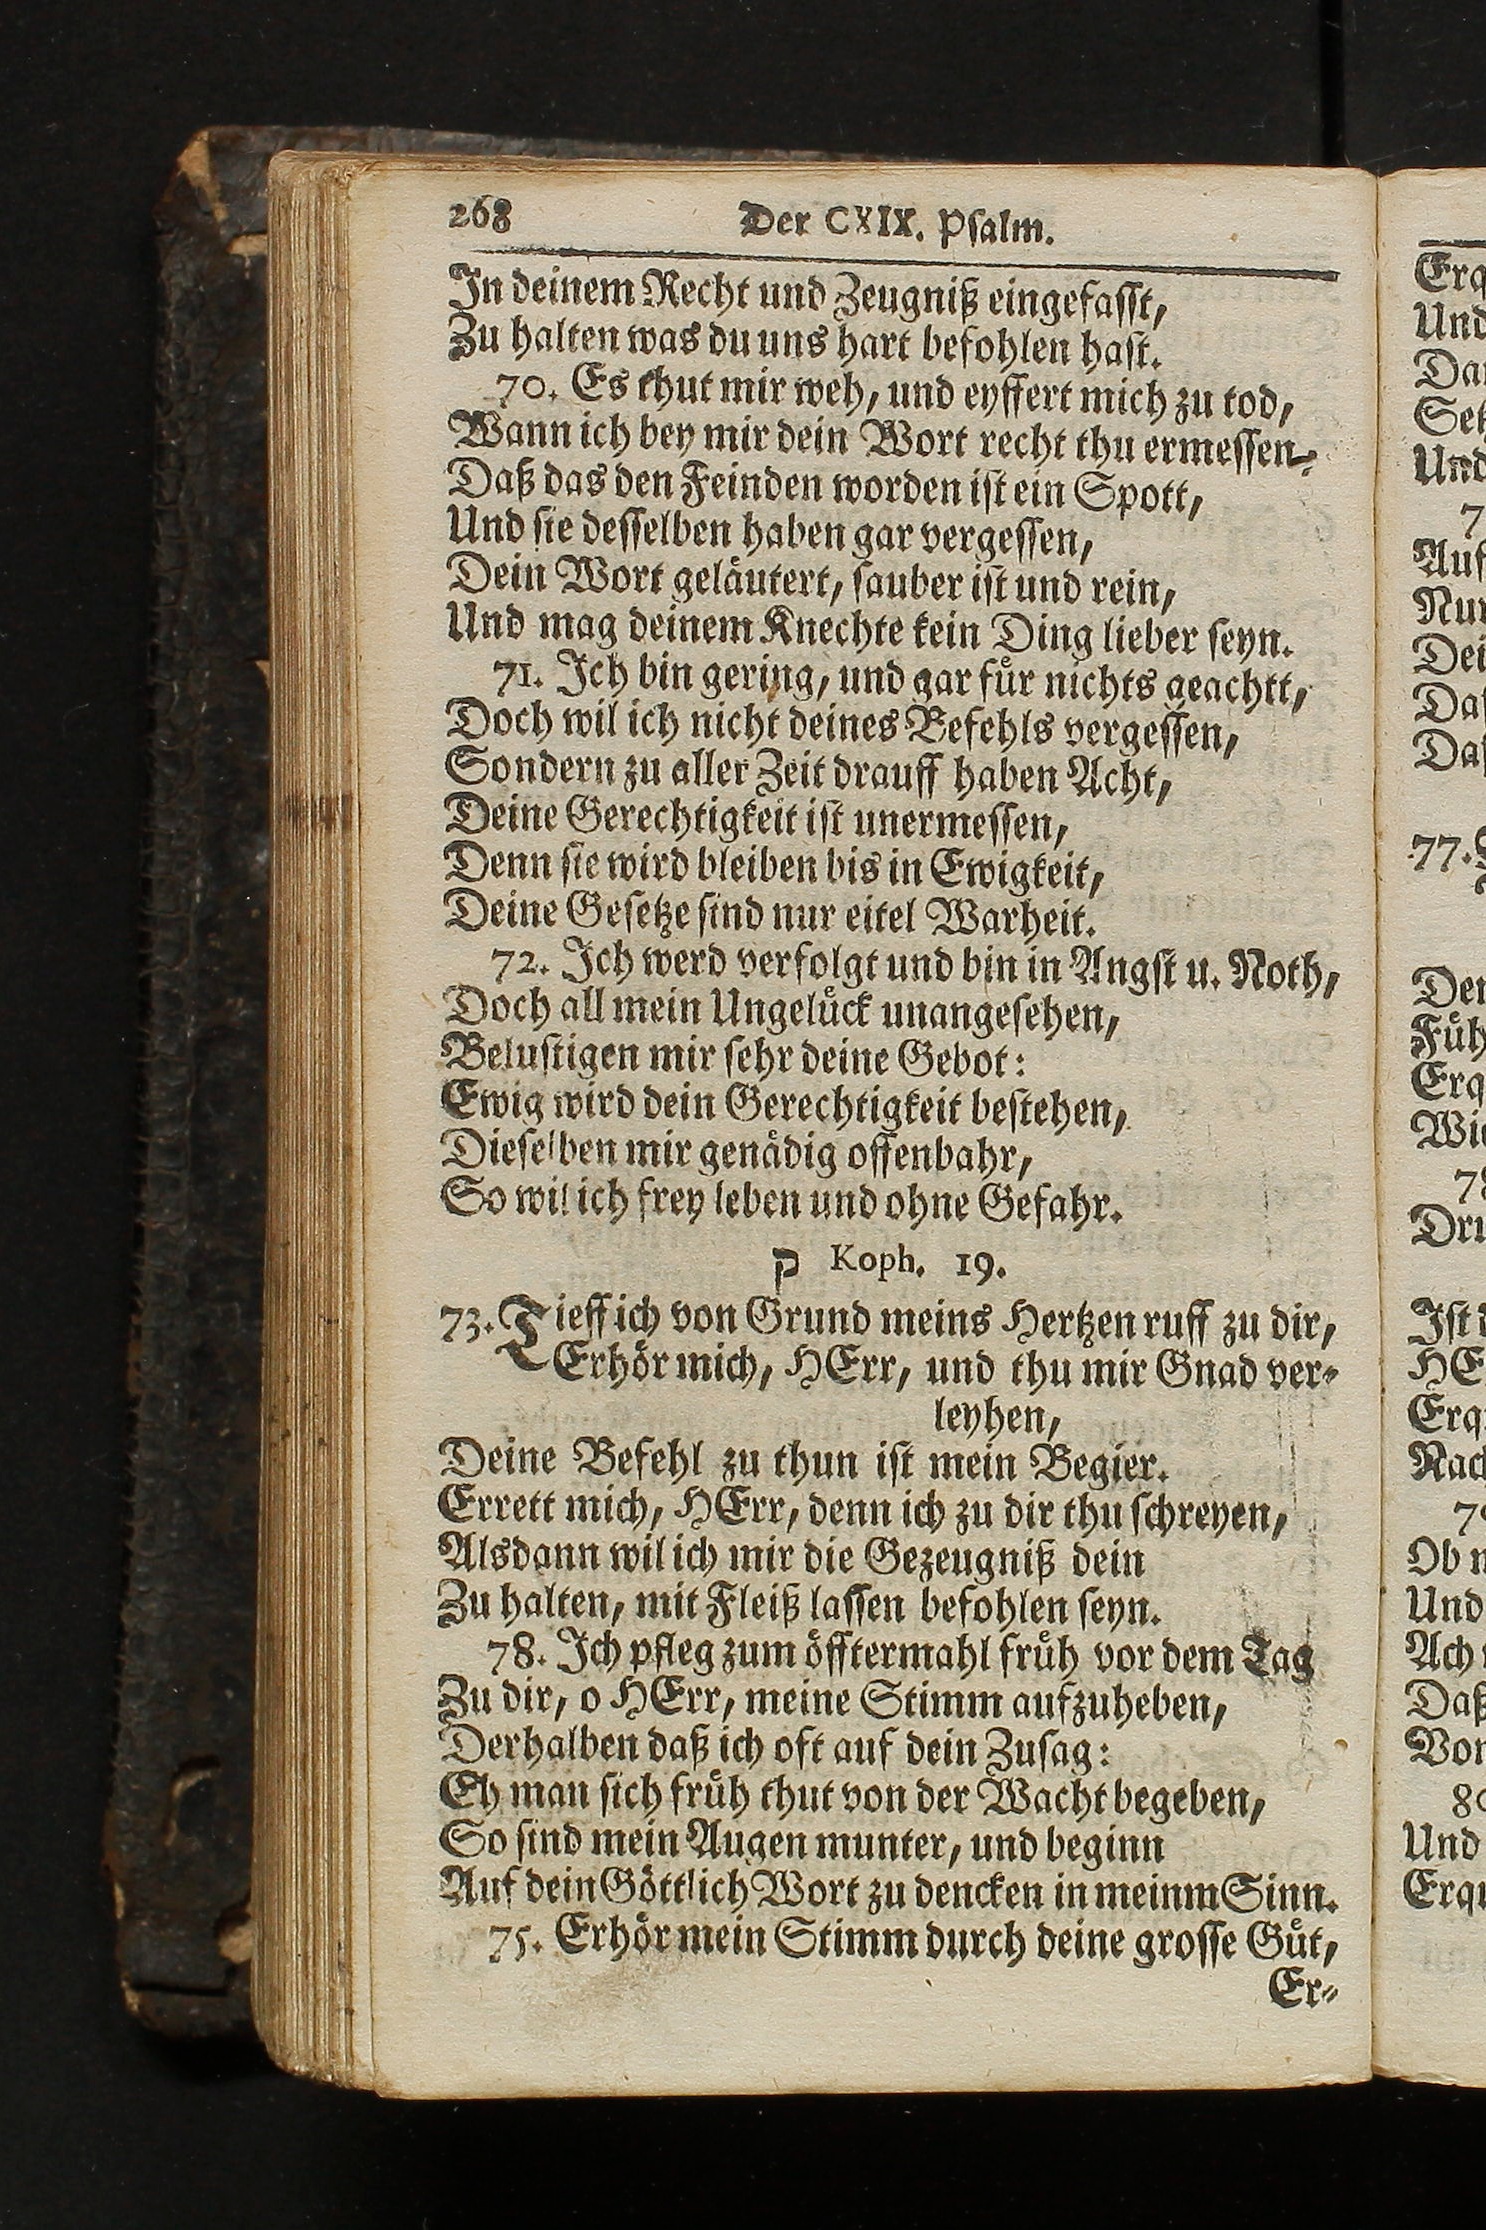 268 Der CXIX. Psalm.
In deinem Recht und Zeugniß eingefasst,
Zu halten was du uns hart befohlen hast.
70. Es thut mir weh, und eyffert mich zu tod,
Wann ich bey mir dein Wort recht thu ermessen,
Daß das den Feinden worden ist ein Spott,
Und sie desselben haben gar vergessen,
Dein Wort geläutert, sauber ist und rein,
Und mag deinem Knechte kein Ding lieber seyn.
71. Ich bin gering, und gar für nichts geachtt,
Doch wil ich nicht deines Befehls vergessen,
Sondern zu aller Zeit drauff haben Acht,
Deine Gerechtigkeit ist unermessen,
Denn sie wird bleiben bis in Ewigkeit,
Deine Gesetze sind nur eitel Warheit.
72. Ich werd verfolgt und bin in Angst u. Noth,
Doch all mein Ungelück unangesehen,
Belustigen mir sehr deine Gebot:
Ewig wird dein Gerechtigkeit bestehen,
Dieselben mir genädig offenbahr,
So wil ich frey leben und ohne Gefahr.
ק Koph. 19.
73. Tieff ich von Grund meins Hertzen ruff zu dir,
Erhör mich, HErr, und thu mir Gnad ver-
leyhen,
Deine Befehl zu thun ist mein Begier.
Errett mich, HErr, denn ich zu dir thu schreyen,
Alsdann wil ich mir die Gezeugniß dein
Zu halten, mit Fleiß lassen befohlen seyn.
78. Ich pfleg zum öfftermahl früh vor dem Tag
Zu dir, o HErr, meine Stimm aufzuheben,
Derhalben daß ich oft auf dein Zusag:
Eh man sich früh thut von der Wacht begeben,
So sind mein Augen munter, und beginn
Auf dein Göttlich Wort zu dencken in meinm Sinn.
75. Erhör mein Stimm durch deine grosse Güt,
Er-